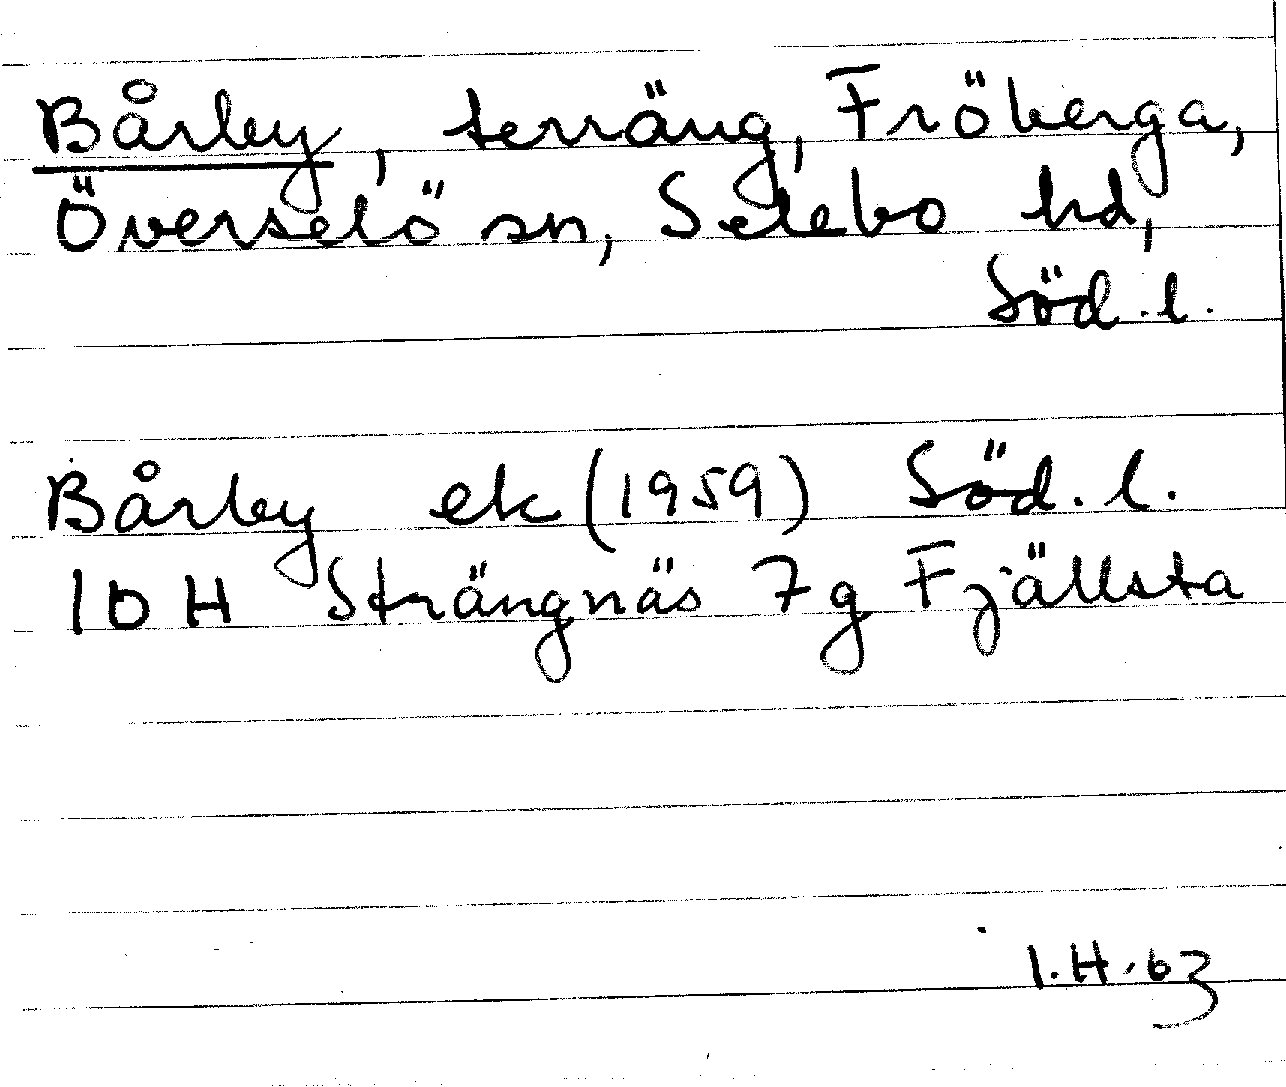 Bårby, terräng, Fröberga,
Överselö sn, Selebo hd,
Söd.l.
Bårby ek (1959) Söd.l.
10 H Strängnäs 7 g Fjällsta
I.H.63